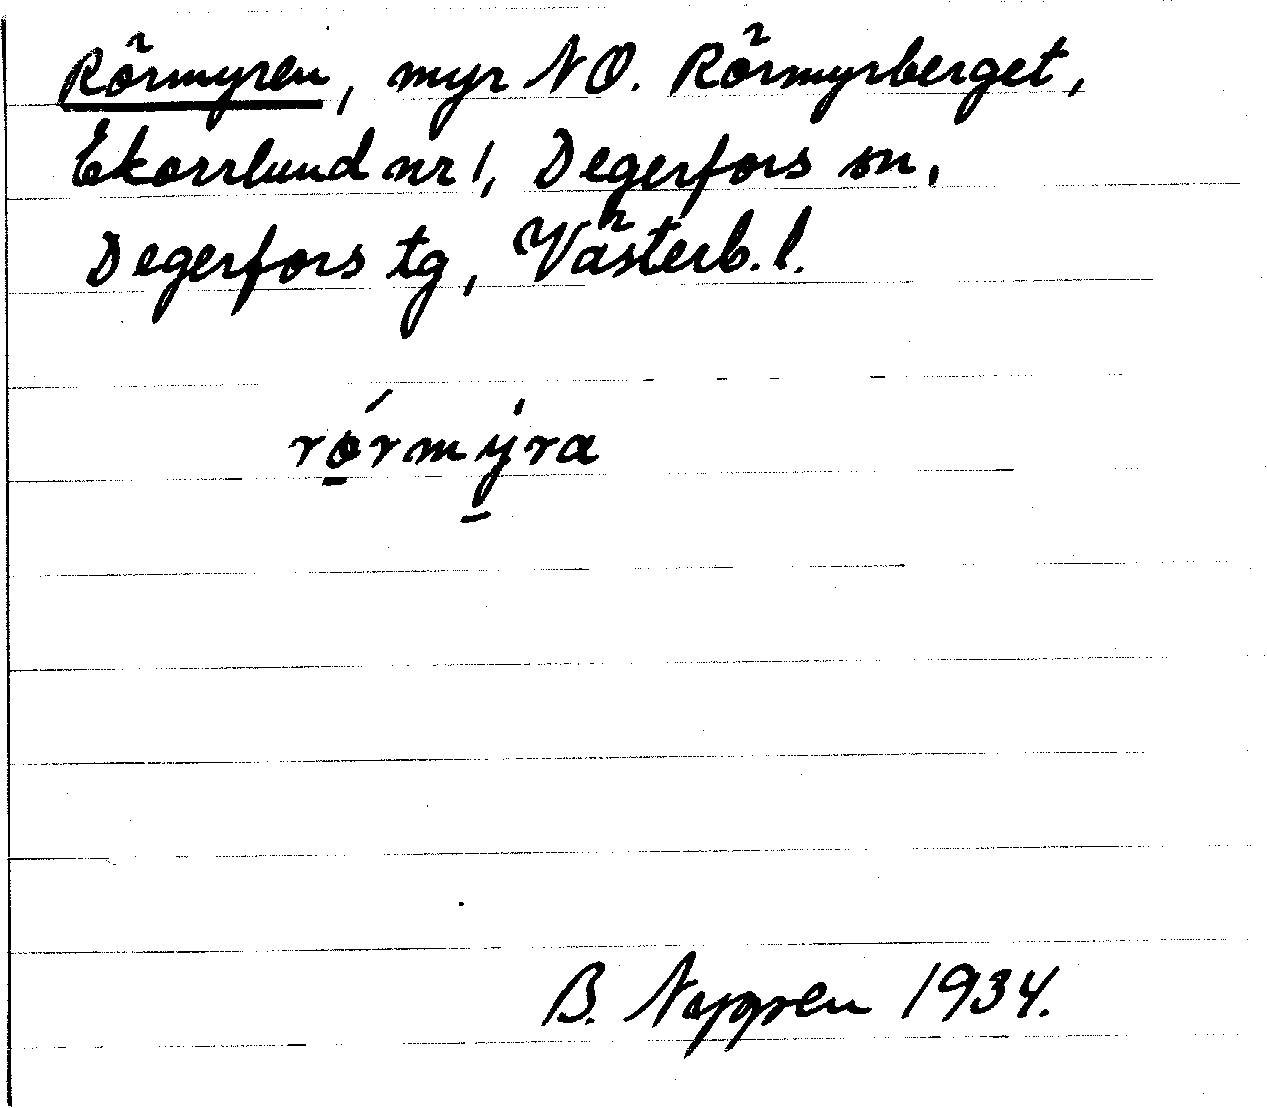 Rörmyren, myr NO. Rörmyrberget,
Ekorrlund nr 1, Degerfors sn,
Degerfors tg, Västerb. l.
ró̲rmý̲ra
B. 1934.